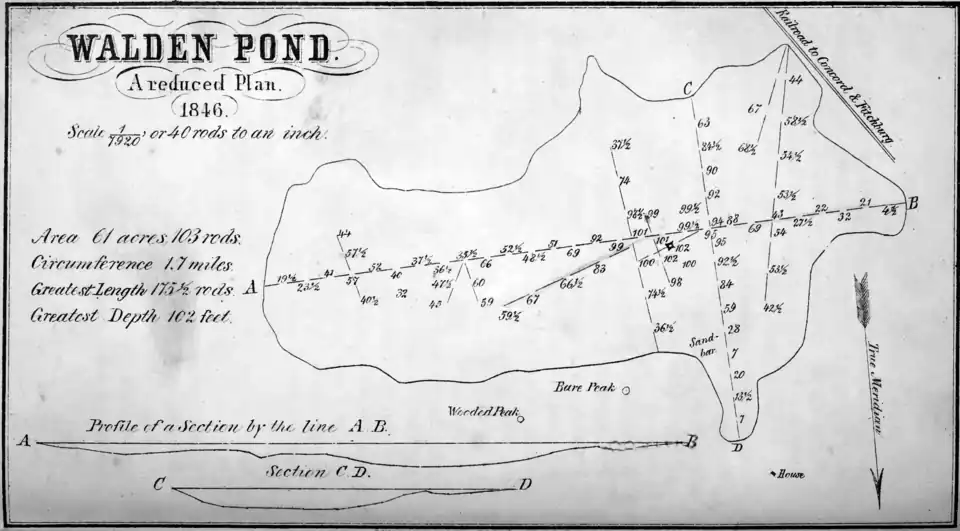 WALDEN POND.
A reduced Plan.
1846.
Scale 1/1920, or 40 rods to an inch.
Area 61 acres 103 rods.
Circumference 1.7 miles.
Greatest Length 175½ rods.
Greatest Depth 102 feet.
Railroad to Concord & Fitchburg
C
A
B
D
44
67
58½
68½
54½
53½
43
54
53½
42½
63
84½
90
92
99½
99½
94
88
95
95
92½
84
59
28
7
20
13½
7
69
27½
22
32
21
4½
37½
74
98½
99
101
101
102
102
100
100
98
99
74½
36½
19½
23½
41
57
44
57½
40½
58
40
32
37½
36½
47½
43
35½
66
60
59
52½
48½
51
69
92
83
66½
67
59½
Sand-
bar
Bare Peak
Wooded Peak
House
True Meridian
Profile of a Section by the line A.B.
A
B
Section C.D.
C
D